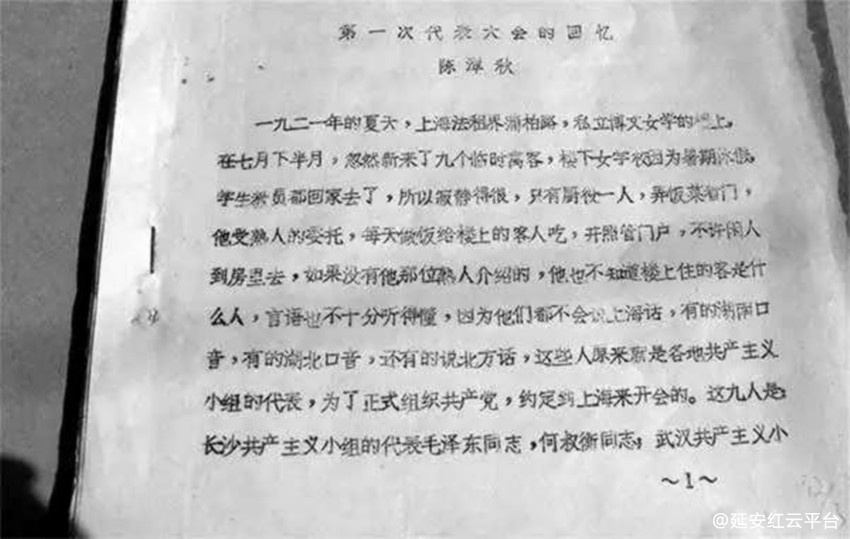 第一次代表大会的回忆
陈潭秋
一九二一年的夏天，上海法租界蒲柏路，私立博文女学的楼上，
在七月下半月，忽然新来了九个临时寓客，楼下女学校因为暑期休假，
学生教员都回家去了，所以寂静得很，只有厨役一人，弄饭菜看门，
他受熟人的委托，每天做饭给楼上的客人吃，并照管门户，不许闲人
到房里去，如果没有他那位熟人介绍的，他也不知道楼上住的客是什
么人，言语也不十分听得懂，因为他们都不会说上海话，有的湖南口
音，有的湖北口音，还有的说北方话，这些人原来就是各地共产主义
小组的代表，为了正式组织共产党，约定到上海来开会的。这九人是：
长沙共产主义小组的代表毛泽东同志，何叔衡同志；武汉共产主义小
～1～
@延安红云平台